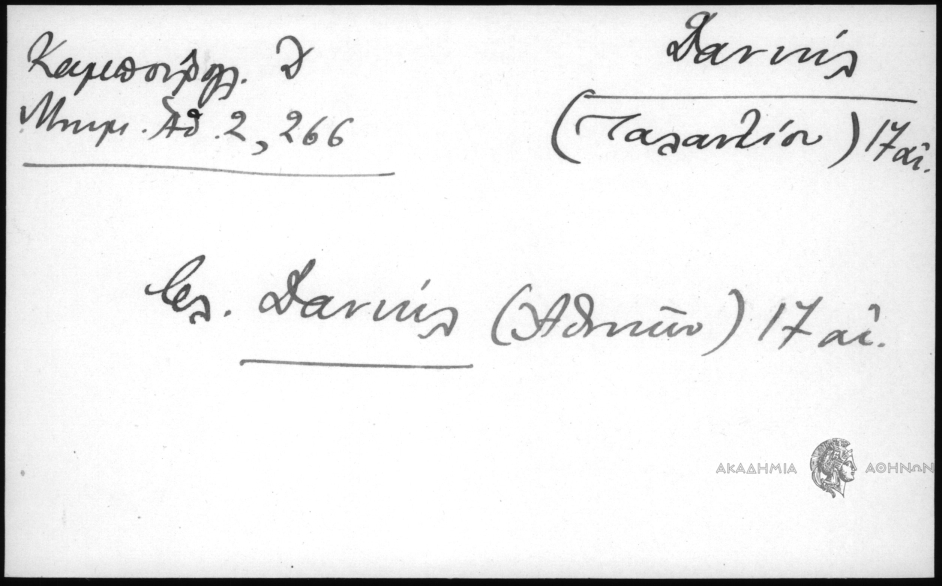 Καμπούρογλ. Δ
Μνημ. Ἀθ. 2, 266
Δανιήλ
(Ταλαντίου) 17 αἰ.
βλ. Δανιήλ (Ἀθηνῶν) 17 αἰ.
ΑΚΑΔΗΜΙΑ ΑΘΗΝΩΝ